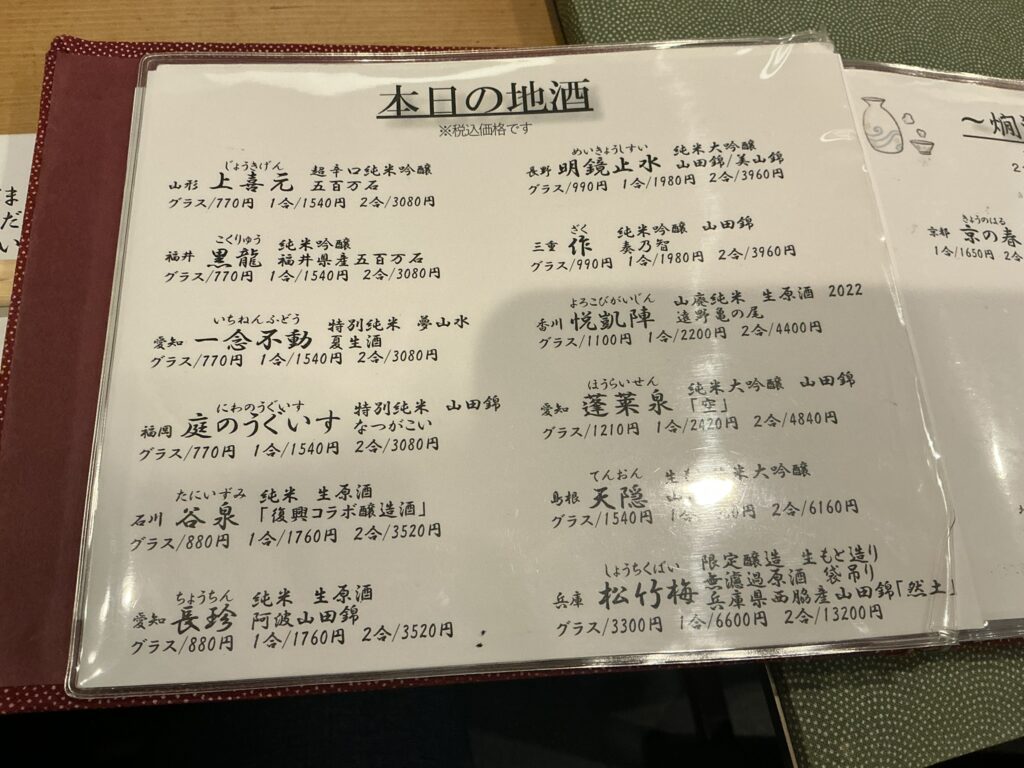 本日の地酒
※税込価格です
じょうきげん
山形 上喜元 超辛口純米吟醸
五百万石
グラス/770円 1合/1540円 2合/3080円
こくりゅう
福井 黒龍 純米吟醸
福井県産五百万石
グラス/770円 1合/1540円 2合/3080円
いちねんふどう
愛知 一念不動 特別純米 夢山水
夏生酒
グラス/770円 1合/1540円 2合/3080円
にわのうぐいす
福岡 庭のうぐいす 特別純米 山田錦
なつがこい
グラス/770円 1合/1540円 2合/3080円
たにいずみ
石川 谷泉 純米 生原酒
「復興コラボ醸造酒」
グラス/880円 1合/1760円 2合/3520円
ちょうちん
愛知 長珍 純米 生原酒
阿波山田錦
グラス/880円 1合/1760円 2合/3520円
めいきょうしすい
長野 明鏡止水 純米大吟醸
山田錦/美山錦
グラス/990円 1合/1980円 2合/3960円
ざく
三重 作 純米吟醸 山田錦
奏乃智
グラス/990円 1合/1980円 2合/3960円
よろこびがいじん
香川 悦凱陣 山廃純米 生原酒 2022
遠野亀の尾
グラス/1100円 1合/2200円 2合/4400円
ほうらいせん
愛知 蓬莱泉 純米大吟醸 山田錦
「空」
グラス/1210円 1合/2420円 2合/4840円
てんおん
島根 天隠 純米大吟醸
グラス/1540円 2合/6160円
しょうちくばい
兵庫 松竹梅 限定醸造 生もと造り
無濾過原酒 袋吊り
兵庫県西脇産山田錦「然土」
グラス/3300円 1合/6600円 2合/13200円
きょうのはる
京都 京の春
1合/1650円